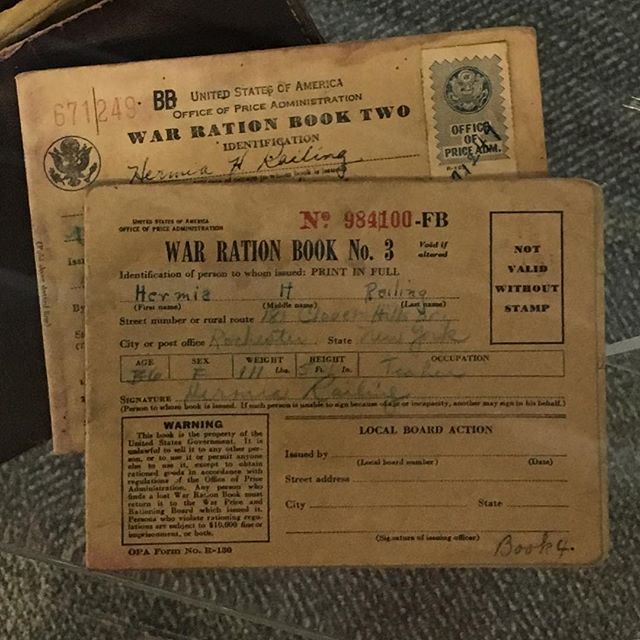 671249 BB UNITED STATES OF AMERICA
OFFICE OF PRICE ADMINISTRATION
WAR RATION BOOK TWO
IDENTIFICATION
Hermia H Railing
OFFICE OF PRICE ADM.
UNITED STATES OF AMERICA
OFFICE OF PRICE ADMINISTRATION
Nº 984100-FB
WAR RATION BOOK No. 3 Void if altered
Identification of person to whom issued: PRINT IN FULL
Hermia H Railing
(First name) (Middle name) (Last name)
Street number or rural route Clover Hills Dr.
City or post office Rochester State New York
AGE SEX WEIGHT HEIGHT OCCUPATION
F 111 Lbs. Ft. In.
SIGNATURE Hermia Railing
(Person to whom book is issued. If such person is unable to sign because of age or incapacity, another may sign in his behalf.)
NOT
VALID
WITHOUT
STAMP
WARNING
This book is the property of the
United States Government. It is
unlawful to sell it to any other per-
son, or to use it or permit anyone
else to use it, except to obtain
rationed goods in accordance with
regulations of the Office of Price
Administration. Any person who
finds a lost War Ration Book must
return it to the War Price and
Rationing Board which issued it.
Persons who violate rationing regu-
lations are subject to $10,000 fine or
imprisonment, or both.
OPA Form No. R-130
LOCAL BOARD ACTION
Issued by
(Local board number) (Date)
Street address
City State
(Signature of issuing officer)
Book 4.